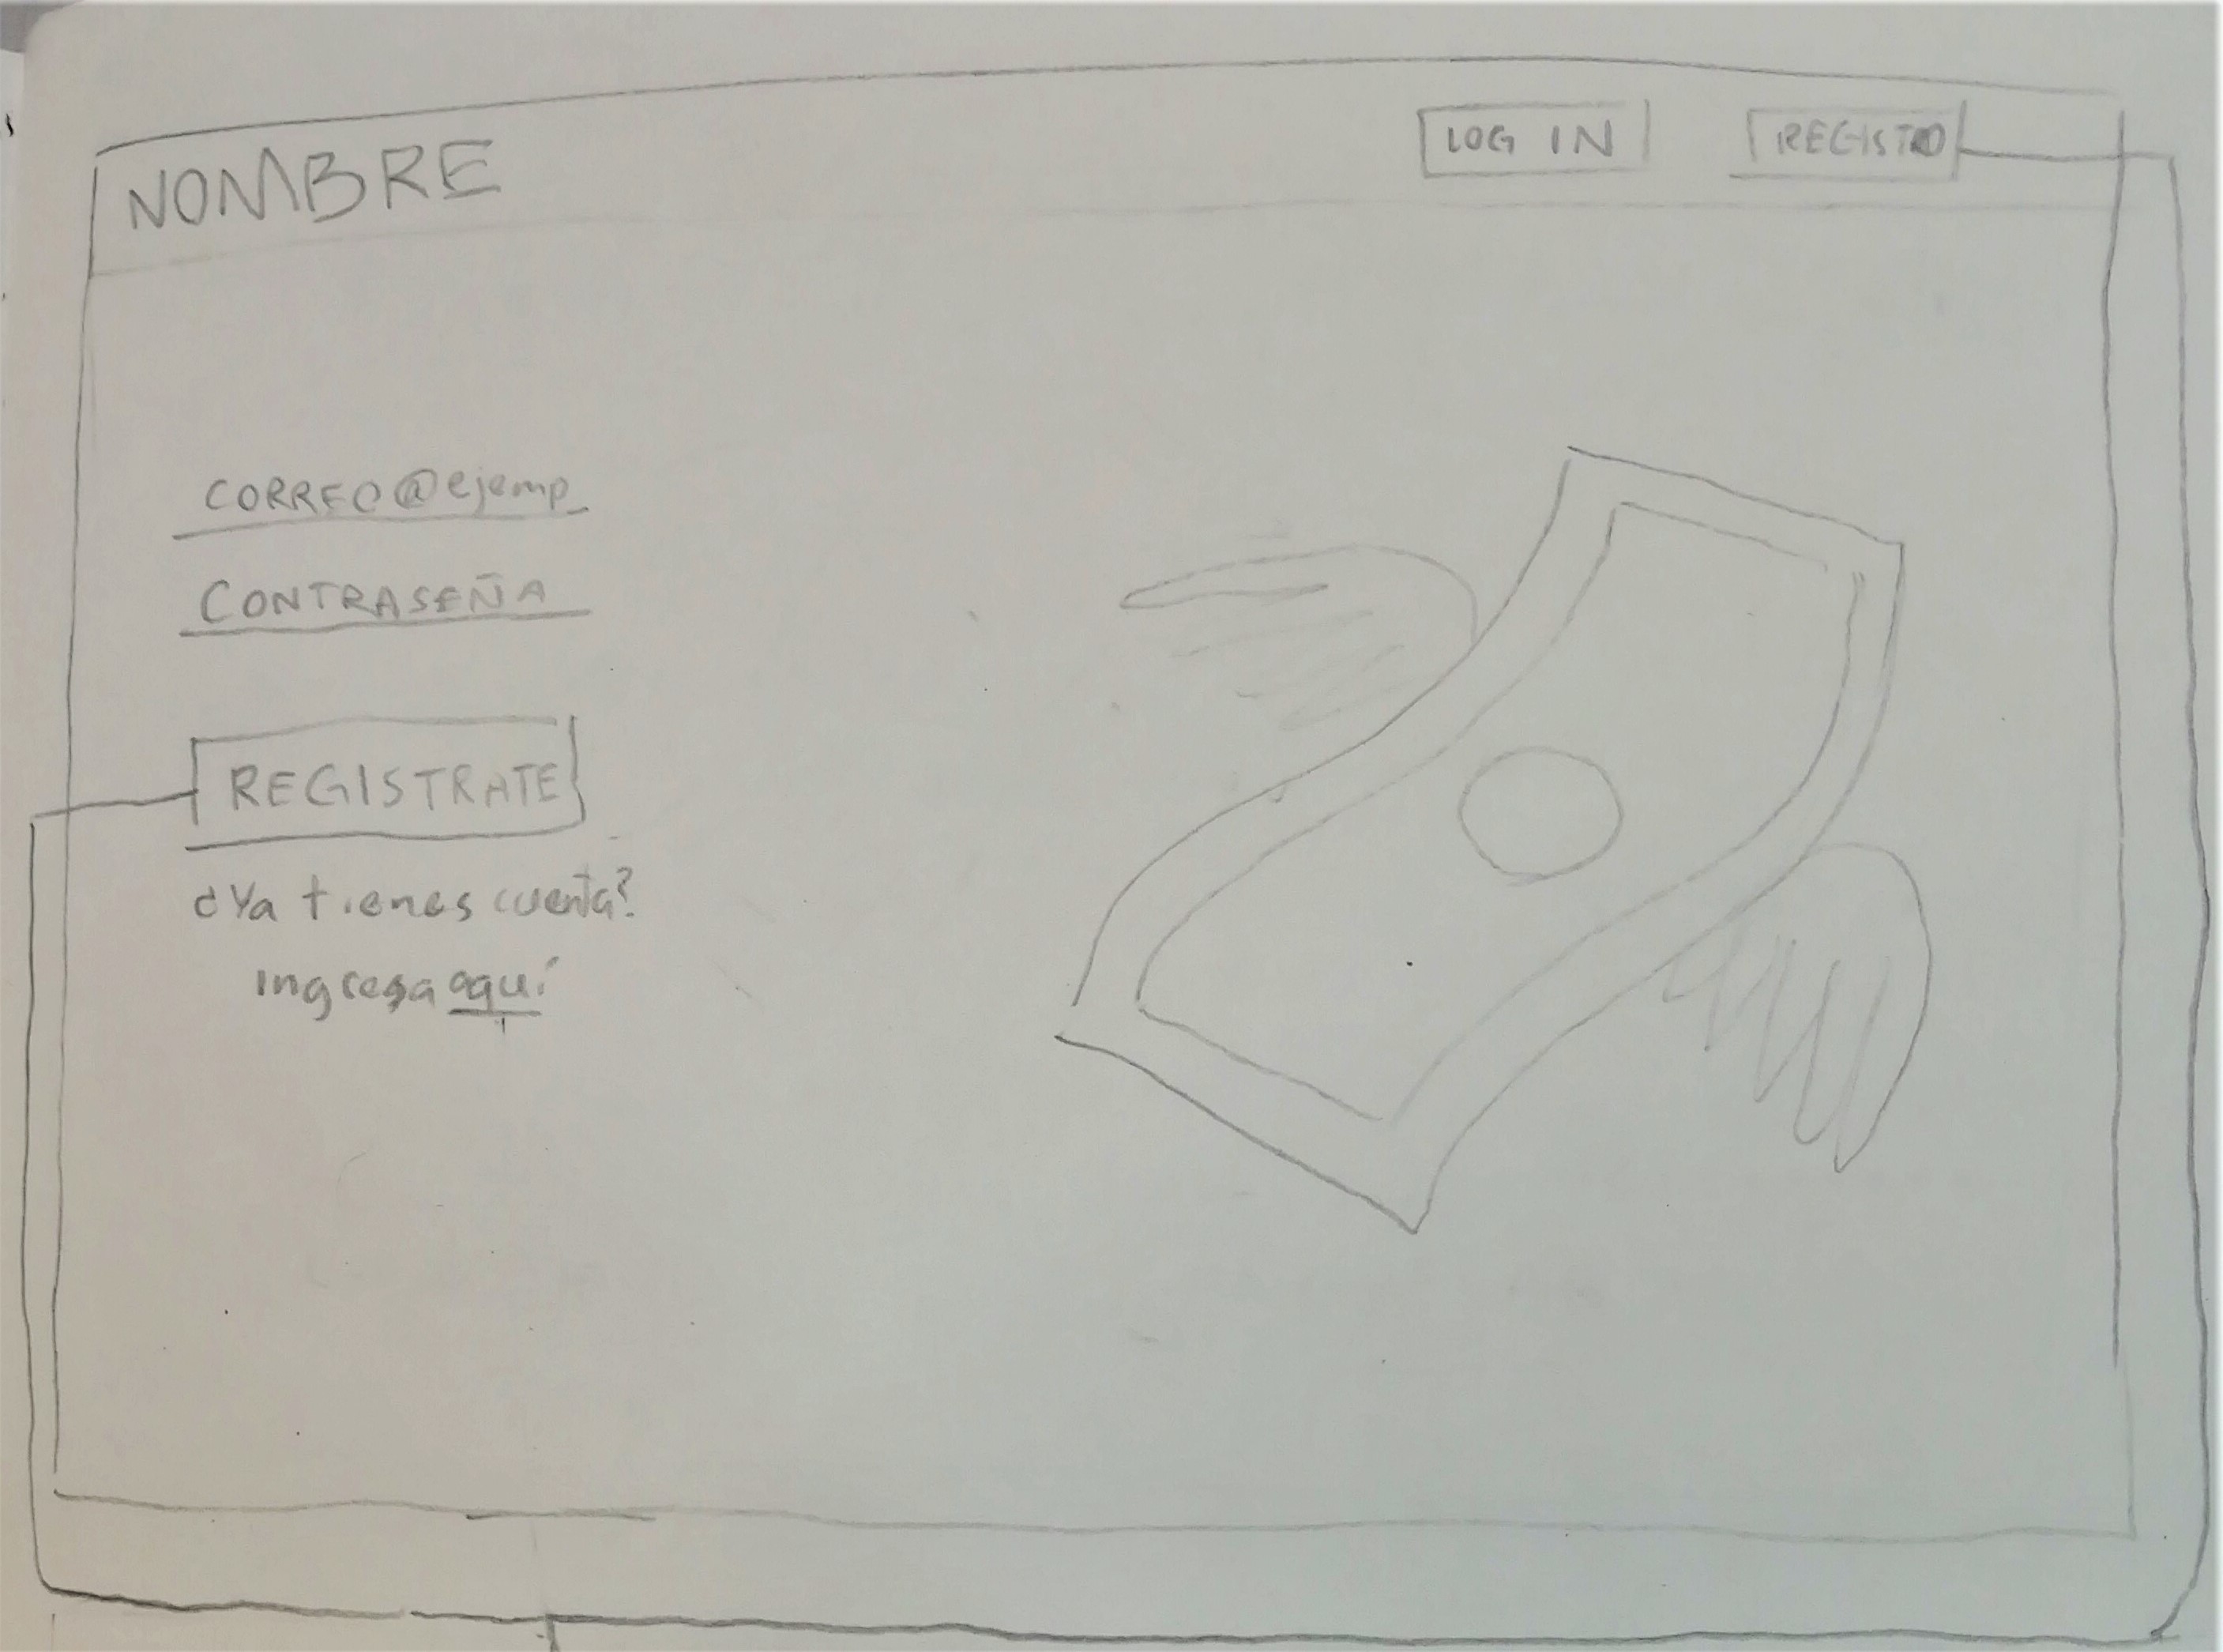 NOMBRE
LOG IN
REGISTRO
CORREO@ejemp
CONTRASEÑA
REGISTRATE
¿Ya tienes cuenta?
ingresa aquí